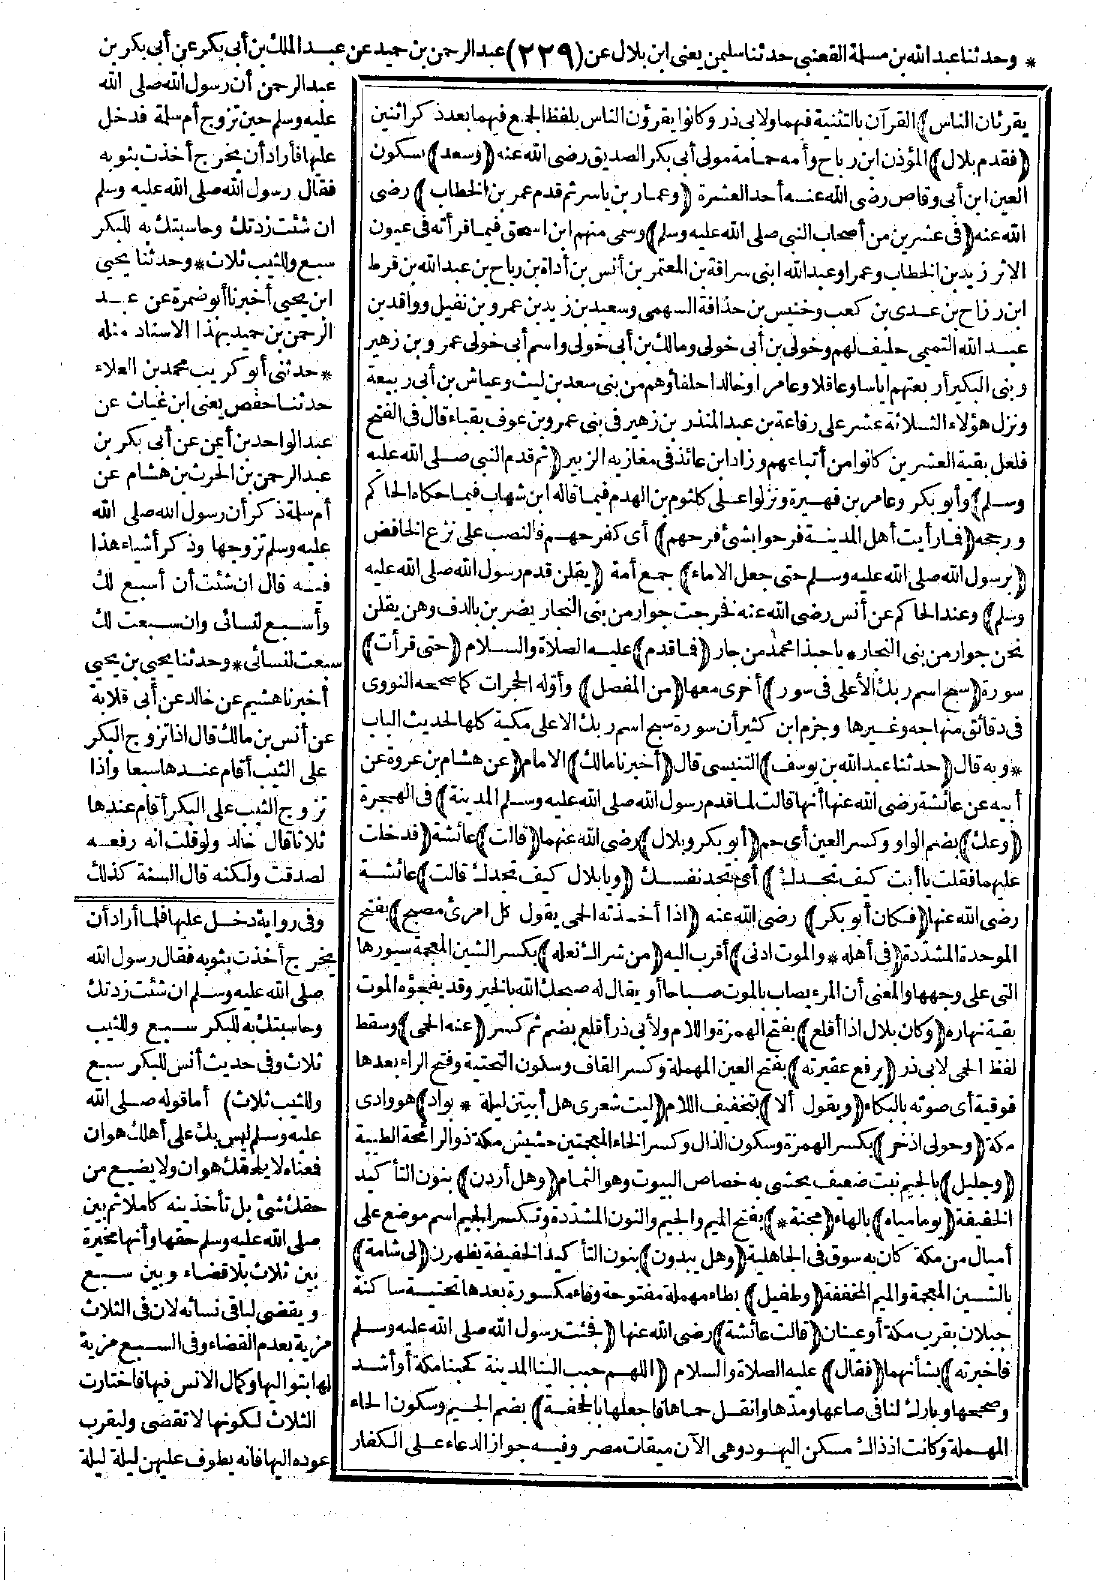 * وحدثنا عبد الله بن مسلمة القعنبي حدثنا سليمن يعنى ابن بلال عن (٢٢٩) عبد الرحمن بن حميد عن عبد الملك بن أبى بكر عن أبى بكر بن
عبد الرحمن أن رسول الله صلى الله
عليه وسلم حين تزوج أم سلمة فدخل
عليها فأراد أن يخرج أخذت بثوبه
فقال رسول الله صلى الله عليه وسلم
ان شئت زدتك وحاسبتك به للبكر
سبع وللثيب ثلاث * وحدثنا يحيى
ابن يحيى أخبرنا أبو ضمرة عن عبد
الرحمن بن حميد بهذا الاسناد مثله
* حدثنى أبو كريب محمد بن العلاء
حدثنا حفص يعنى ابن غياث عن
عبد الواحد بن أيمن عن أبى بكر بن
عبد الرحمن بن الحرث بن هشام عن
أم سلمة ذكر أن رسول الله صلى الله
عليه وسلم تزوجها وذكر أشياء هذا
فيه قال ان شئت أن أسبع لك
وأسبع لنسائى وان سبعت لك
سبعت لنسائى * وحدثنا يحيى بن يحيى
أخبرنا هشيم عن خالد عن أبى قلابة
عن أنس بن مالك قال اذا تزوج البكر
على الثيب أقام عندها سبعا واذا
تزوج الثيب على البكر أقام عندها
ثلاثا قال خالد ولو قلت انه رفعه
لصدقت ولكنه قال السنة كذلك
وفى رواية دخل عليها فلما أراد أن
يخرج أخذت بثوبه فقال رسول الله
صلى الله عليه وسلم ان شئت زدتك
وحاسبتك به للبكر سبع وللثيب
ثلاث وفى حديث أنس للبكر سبع
وللثيب ثلاث) أما قوله صلى الله
عليه وسلم ليس بك على أهلك هوان
فمعناه لا يلحقك هوان ولا يضيع من
حقك شئ بل تأخذينه كاملا ثم بين
صلى الله عليه وسلم حقها وأنها مخيرة
بين ثلاث بلا قضاء وبين سبع
ويقضى لباقى نسائه لان فى الثلاث
مزية بعدم القضاء وفى السبع مزية
لها بتواليها وكمال الانس فيها فاختارت
الثلاث لكونها لا تقضى وليقرب
عوده اليها فانه يطوف عليهن ليلة ليلة
يقرئان الناس) القرآن بالتثنية فيهما ولابى ذر وكانوا يقرؤن الناس بلفظ الجمع فيهما بعد ذكر اثنين
(فقدم بلال) المؤذن ابن رباح وأمه حمامة مولى أبى بكر الصديق رضى الله عنه (وسعد) بسكون
العين ابن أبى وقاص رضى الله عنه أحد العشرة (وعمار بن ياسر ثم قدم عمر بن الخطاب) رضى
الله عنه (فى عشرين من أصحاب النبى صلى الله عليه وسلم) وسمى منهم ابن اسحق فيما قرأته فى عيون
الاثر زيد بن الخطاب وعمرا وعبد الله ابنى سراقة بن المعتمر بن أنس بن أداة بن رباح بن عبد الله بن قرط
ابن رزاح بن عدى بن كعب وخنيس بن حذافة السهمى وسعيد بن زيد بن عمرو بن نفيل وواقد بن
عبد الله التميمى حليف لهم وخولى بن أبى خولى ومالك بن أبى خولى واسم أبى خولى عمرو بن زهير
وبنى البكير أربعتهم اياسا وعاقلا وعامرا وخالدا حلفاؤهم من بنى سعد بن ليث وعياش بن أبى ربيعة
ونزل هؤلاء الثلاثة عشر على رفاعة بن عبد المنذر بن زهير فى بنى عمرو بن عوف بقباء قال فى الفتح
فلعل بقية العشرين كانوا من أتباعهم وزاد ابن عائذ فى مغازيه الزبير (ثم قدم النبى صلى الله عليه
وسلم) وأبو بكر وعامر بن فهيرة ونزلوا على كلثوم بن الهدم فيما قاله ابن شهاب فيما حكاه الحاكم
ورجحه (فما رأيت أهل المدينة فرحوا بشئ فرحهم) أى كفرحهم فالنصب على نزع الخافض
(برسول الله صلى الله عليه وسلم حتى جعل الاماء) جمع أمة (يقلن قدم رسول الله صلى الله عليه
وسلم) وعند الحاكم عن أنس رضى الله عنه فخرجت جوار من بنى النجار يضربن بالدف وهن يقلن
نحن جوار من بنى النجار * يا حبذا محمد من جار (فما قدم) عليه الصلاة والسلام (حتى قرأت)
سورة (سبح اسم ربك الأعلى فى سور) أخرى معها (من المفصل) وأوله الحجرات كما صححه النووى
فى دقائق منهاجه وغيرها وجزم ابن كثير أن سورة سبح اسم ربك الاعلى مكية كلها لحديث الباب
* وبه قال (حدثنا عبد الله بن يوسف) التنيسى قال (أخبرنا مالك) الامام (عن هشام بن عروة عن
أبيه عن عائشة رضى الله عنها أنها قالت لما قدم رسول الله صلى الله عليه وسلم المدينة) فى الهجرة
(وعك) بضم الواو وكسر العين أى حم (أبو بكر وبلال) رضى الله عنهما (قالت) عائشة (فدخلت
عليهما فقلت يا أبت كيف تجدك) أى تجد نفسك (ويا بلال كيف تجدك قالت) عائشة
رضى الله عنها (فكان أبو بكر) رضى الله عنه (اذا أخذته الحمى يقول كل امرئ مصبح) بفتح
الموحدة المشددة (فى أهله * والموت ادنى) أقرب اليه (من شراك نعله) بكسر الشين المعجمة سيورها
التى على وجهها والمعنى أن المرء يصاب بالموت صباحا أو يقال له صبحك الله بالخير وقد يفجؤه الموت
بقية نهاره (وكان بلال اذا أقلع) بفتح الهمزة واللام ولأبى ذر أقلع بضم ثم كسر (عنه الحمى) وسقط
لفظ الحمى لابى ذر (يرفع عقيرته) بفتح العين المهملة وكسر القاف وسكون التحتية وفتح الراء بعدها
فوقية أى صوته بالبكاء (ويقول ألا) بتخفيف اللام (ليت شعرى هل أبيتن ليلة * بواد) هو وادى
مكة (وحولى اذخر) بكسر الهمزة وسكون الذال وكسر الخاء المعجمتين حشيش مكة ذو الرائحة الطيبة
(وجليل) بالجيم نبت ضعيف يحشى به خصاص البيوت وهو الثمام (وهل أردن) بنون التأكيد
الخفيفة (يوما مياه) بالهاء (مجنة *) بفتح الميم والجيم والنون المشددة وتكسر الجيم اسم موضع على
أميال من مكة كان به سوق فى الجاهلية (وهل يبدون) بنون التأكيد الخفيفة يظهرن (لى شامة)
بالشين المعجمة والميم المخففة (وطفيل) بطاء مهملة مفتوحة وفاء مكسورة بعدها تحتية ساكنة
جبلان بقرب مكة أو عينان (قالت عائشة) رضى الله عنها (فجئت رسول الله صلى الله عليه وسلم
فأخبرته) بشأنهما (فقال) عليه الصلاة والسلام (اللهم حبب الينا المدينة كحبنا مكة أو أشد
وصححها وبارك لنا فى صاعها ومدها وانقل حماها فاجعلها بالجحفة) بضم الجيم وسكون الحاء
المهملة وكانت اذ ذاك مسكن اليهود وهى الآن ميقات مصر وفيه جواز الدعاء على الكفار